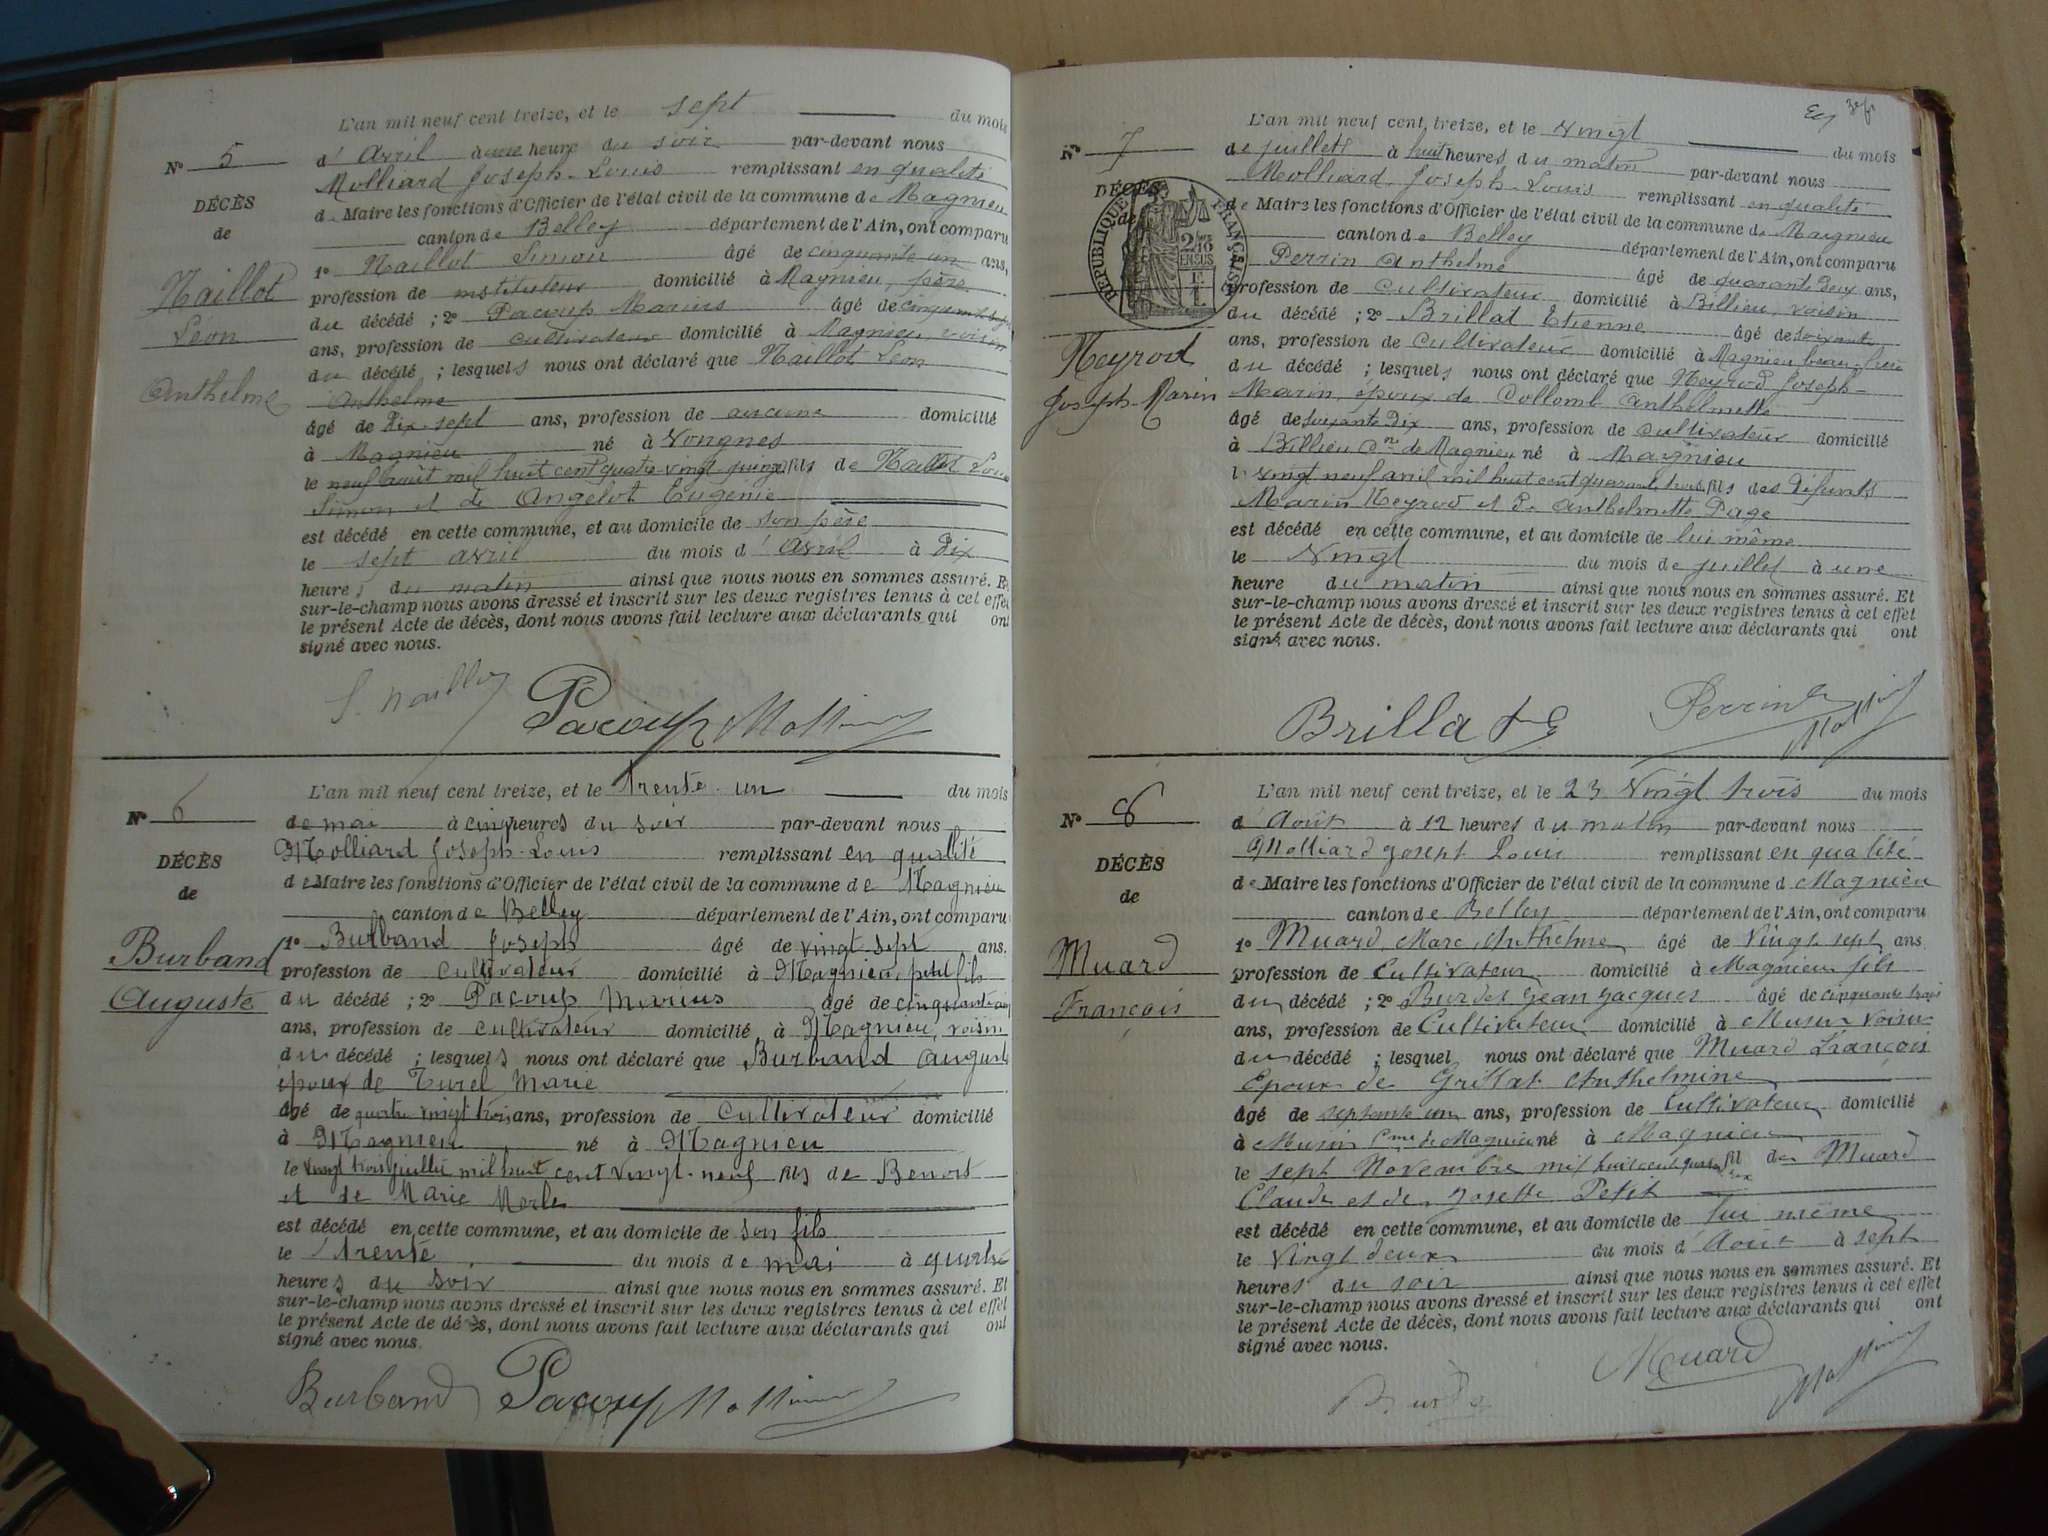 L'an mil neuf cent treize, et le sept du mois
N° 5
d'Avril à une heure du soir par-devant nous
Molliard Joseph-Louis remplissant en qualité
DÉCÈS
de Maire les fonctions d'Officier de l'état civil de la commune de Magnieu
de
canton de Belley département de l'Ain, ont comparu
1° Naillot Simon âgé de cinquante un ans,
Naillot
profession de instituteur domicilié à Magnieu, père
du décédé ; 2° Pacoup Marius âgé de
Léon
ans, profession de cultivateur domicilié à Magnieu, voisin
du décédé ; lesquels nous ont déclaré que Naillot Léon
Anthelme
Anthelme
âgé de Dix-sept ans, profession de aucune domicilié
à Magnieu né à Vongnes
le neuf Août mil huit cent quatre vingt quinze fils de Naillot Louis
Simon et de Angelot Eugénie
est décédé en cette commune, et au domicile de son père
le sept avril du mois d'Avril à Dix
heures du matin ainsi que nous nous en sommes assuré. Et
sur-le-champ nous avons dressé et inscrit sur les deux registres tenus à cet effet
le présent Acte de décès, dont nous avons fait lecture aux déclarants qui ont
signé avec nous.
S. Naillot Pacoup Molliard
L'an mil neuf cent treize, et le trente-un du mois
N° 6
de mai à cinq heures du soir par-devant nous
Molliard Joseph-Louis remplissant en qualité
DÉCÈS
de Maire les fonctions d'Officier de l'état civil de la commune de Magnieu
de
canton de Belley département de l'Ain, ont comparu
1° Burband Joseph âgé de vingt-sept ans.
Burband
profession de cultivateur domicilié à Magnieu, petit fils
Auguste
du décédé ; 2° Pacoup Marius âgé de
ans, profession de cultivateur domicilié à Magnieu, voisin
du décédé ; lesquels nous ont déclaré que Burband Auguste
époux de Turel Marie
âgé de quatre vingt trois ans, profession de Cultivateur domicilié
à Magnieu né à Magnieu
le vingt trois juillet mil huit cent vingt-neuf fils de Benoit
et de Marie Merle
est décédé en cette commune, et au domicile de son fils
le trente du mois de mai à quatre
heures du soir ainsi que nous nous en sommes assuré. Et
sur-le-champ nous avons dressé et inscrit sur les deux registres tenus à cet effet
le présent Acte de décès, dont nous avons fait lecture aux déclarants qui ont
signé avec nous.
Burband Pacoup Molliard
L'an mil neuf cent treize, et le vingt du mois
N° 7
de juillet à huit heures du matin par-devant nous
Molliard Joseph-Louis remplissant en qualité
DÉCÈS
de Maire les fonctions d'Officier de l'état civil de la commune de Magnieu
de
REPUBLIQUE FRANÇAISE
canton de Belley département de l'Ain, ont comparu
Perrin Anthelme âgé de quarante Deux ans,
profession de Cultivateur domicilié à Billieu, voisin
du décédé ; 2° Brillat Etienne âgé de soixante
Neyrod
ans, profession de Cultivateur domicilié à Magnieu beau-frère
du décédé ; lesquels nous ont déclaré que Neyrod Joseph-
Joseph-Marin
Marin, époux de Collomb Anthelmette
âgé de soixante Dix ans, profession de Cultivateur domicilié
à Billieu Cne de Magnieu né à Magnieu
le vingt neuf avril mil huit cent quarante trois, fils des Défunts
Marin Neyrod et De Anthelmette Page
est décédé en cette commune, et au domicile de lui même
le Vingt du mois de juillet à une
heure du matin ainsi que nous nous en sommes assuré. Et
sur-le-champ nous avons dressé et inscrit sur les deux registres tenus à cet effet
le présent Acte de décès, dont nous avons fait lecture aux déclarants qui ont
signé avec nous.
Brillat E Perrin A Molliard
L'an mil neuf cent treize, et le 23 Vingt trois du mois
N° 8
d'Août à 12 heures du matin par-devant nous
Molliard Joseph Louis remplissant en qualité
DÉCÈS
de Maire les fonctions d'Officier de l'état civil de la commune d Magnieu
de
canton de Belley département de l'Ain, ont comparu
1° Muard Marc Anthelme âgé de Vingt sept ans
Muard
profession de Cultivateur domicilié à Magnieu fils
François
du décédé ; 2° Burdet Jean Jacques âgé de cinquante trois
ans, profession de Cultivateur domicilié à Musin Voisin
du décédé ; lesquel nous ont déclaré que Muard François
Epoux de Grillat Anthelmine
âgé de septante un ans, profession de Cultivateur domicilié
à Musin Cne de Magnieu né à Magnieu
le sept Novembre mil huit cent fil de Muard
Claude et de Josette Petit
est décédé en cette commune, et au domicile de lui même
le Vingt deux du mois d'Aout à sept
heures du soir ainsi que nous nous en sommes assuré. Et
sur-le-champ nous avons dressé et inscrit sur les deux registres tenus à cet effet
le présent Acte de décès, dont nous avons fait lecture aux déclarants qui ont
signé avec nous.
Burdet Muard Molliard